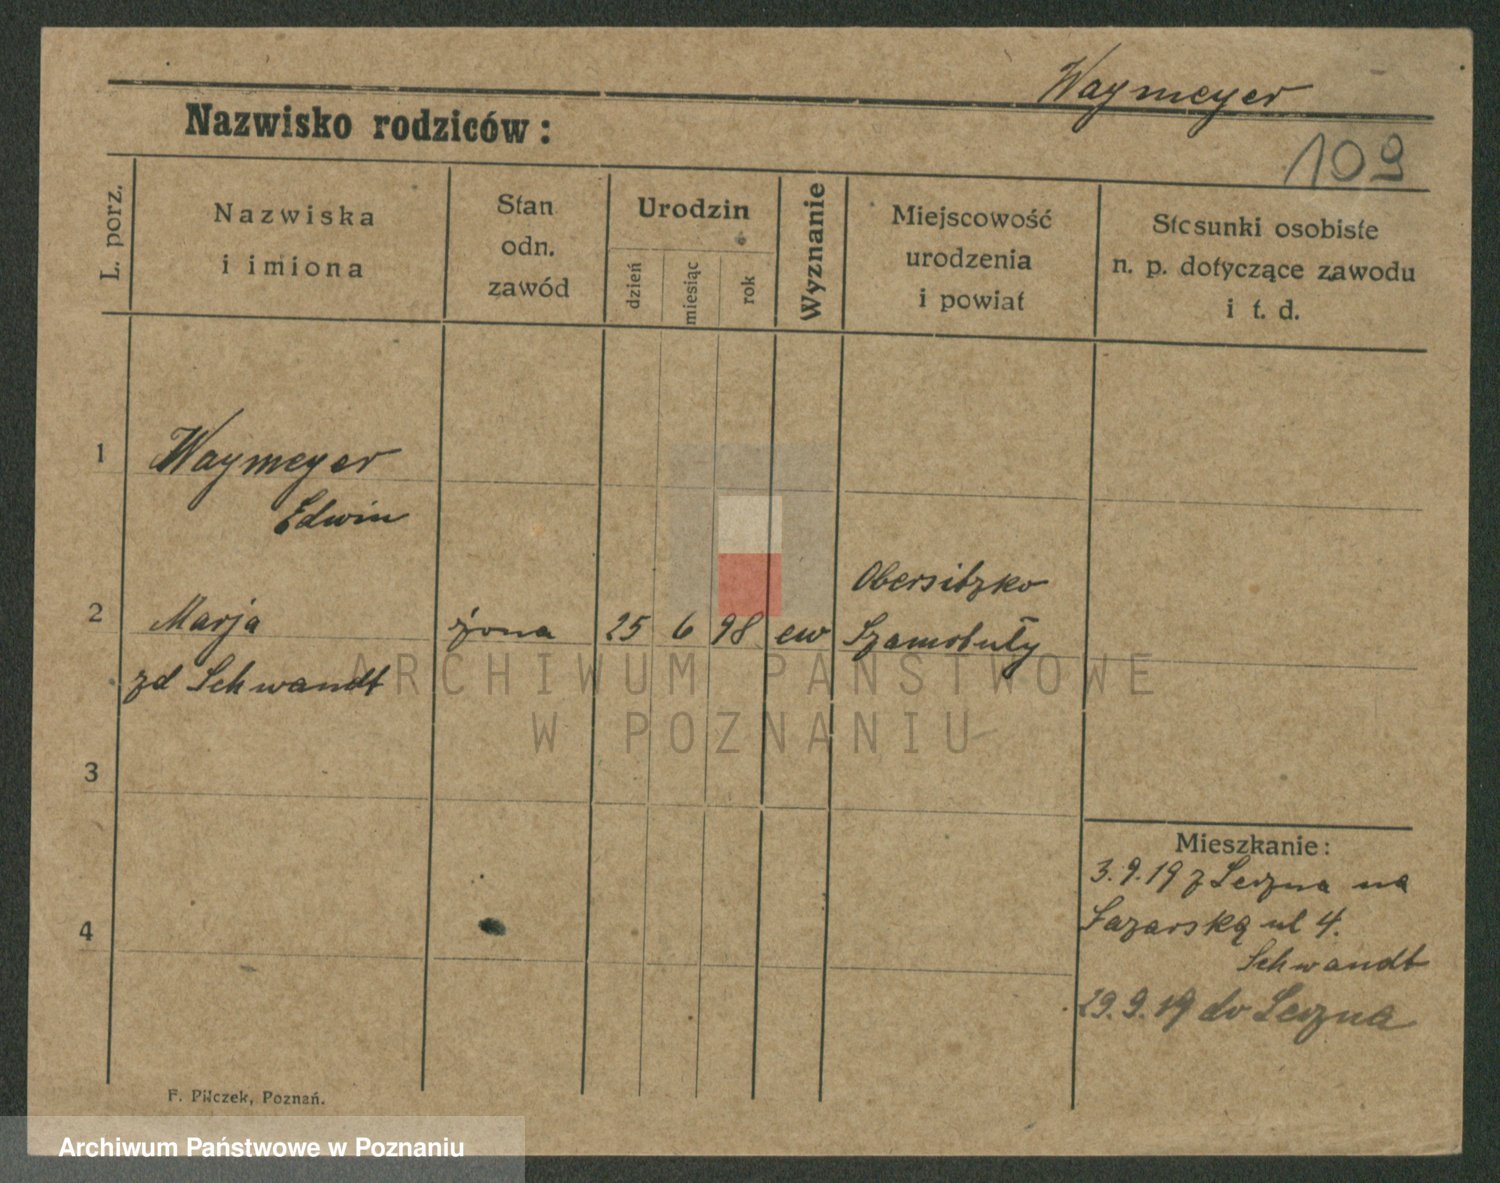 Waymeyer
Nazwisko rodziców:
109
L. porz.
Nazwiska
i imiona
Stan
odn.
zawód
Urodzin
dzień
miesiąc
rok
Wyznanie
Miejscowość
urodzenia
i powiat
Stosunki osobiste
n. p. dotyczące zawodu
i t. d.
1
Waymeyer
Edwin
2
Marja
zd Schwandt
żona
25
6
98
ew
Obersitzko
Szamotuły
3
4
Mieszkanie:
3.9.19 z Leszna na
Łazarską ul 4.
Schwandt
29.9.19 do Leszna
F. Pilczek, Poznań.
ARCHIWUM PAŃSTWOWE
W POZNANIU
Archiwum Państwowe w Poznaniu